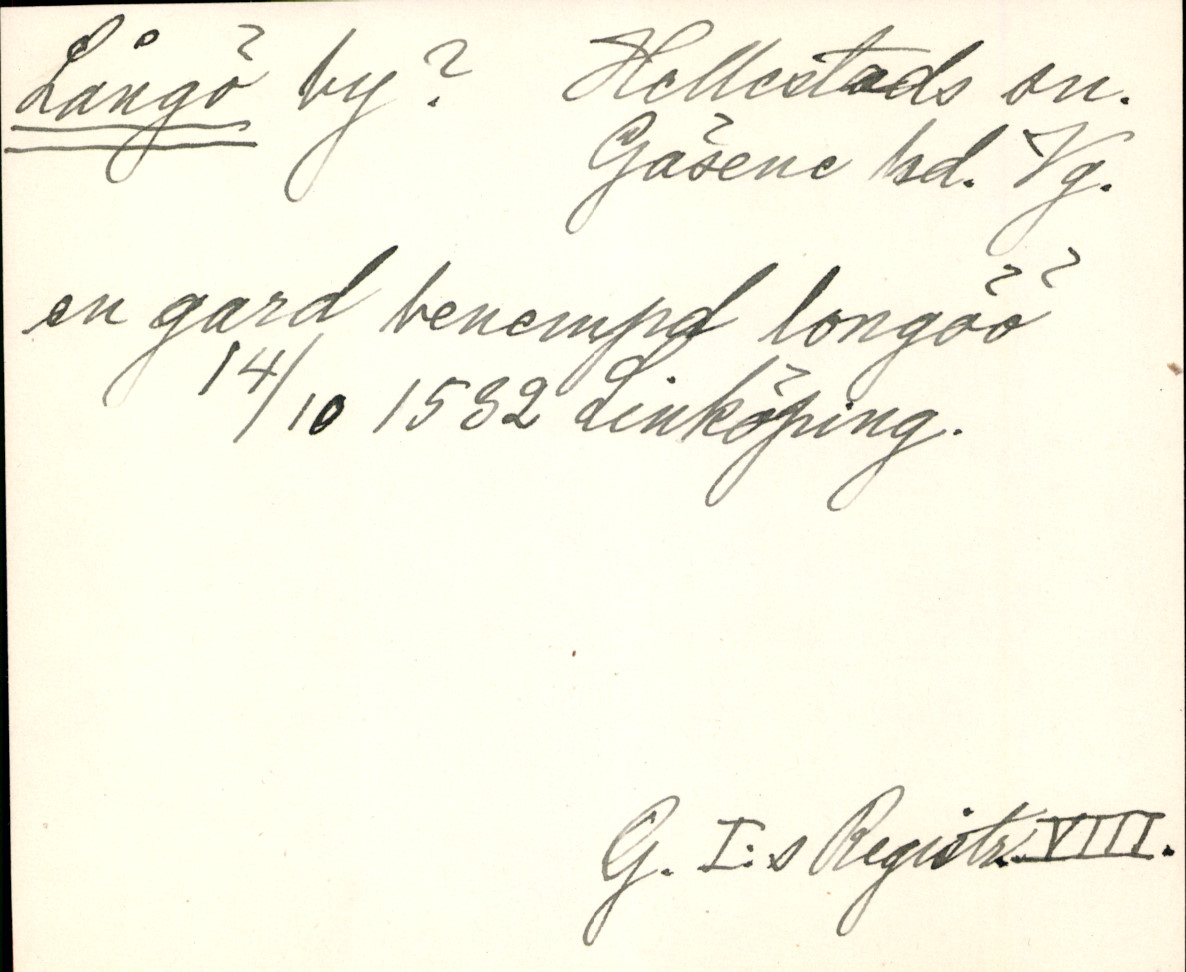 Långö by? Hellestads sn.
Gäsene hd. Vg.
en gard benempd longöö
14/10 1532 Linköping.
G. I:s Registr. VIII.